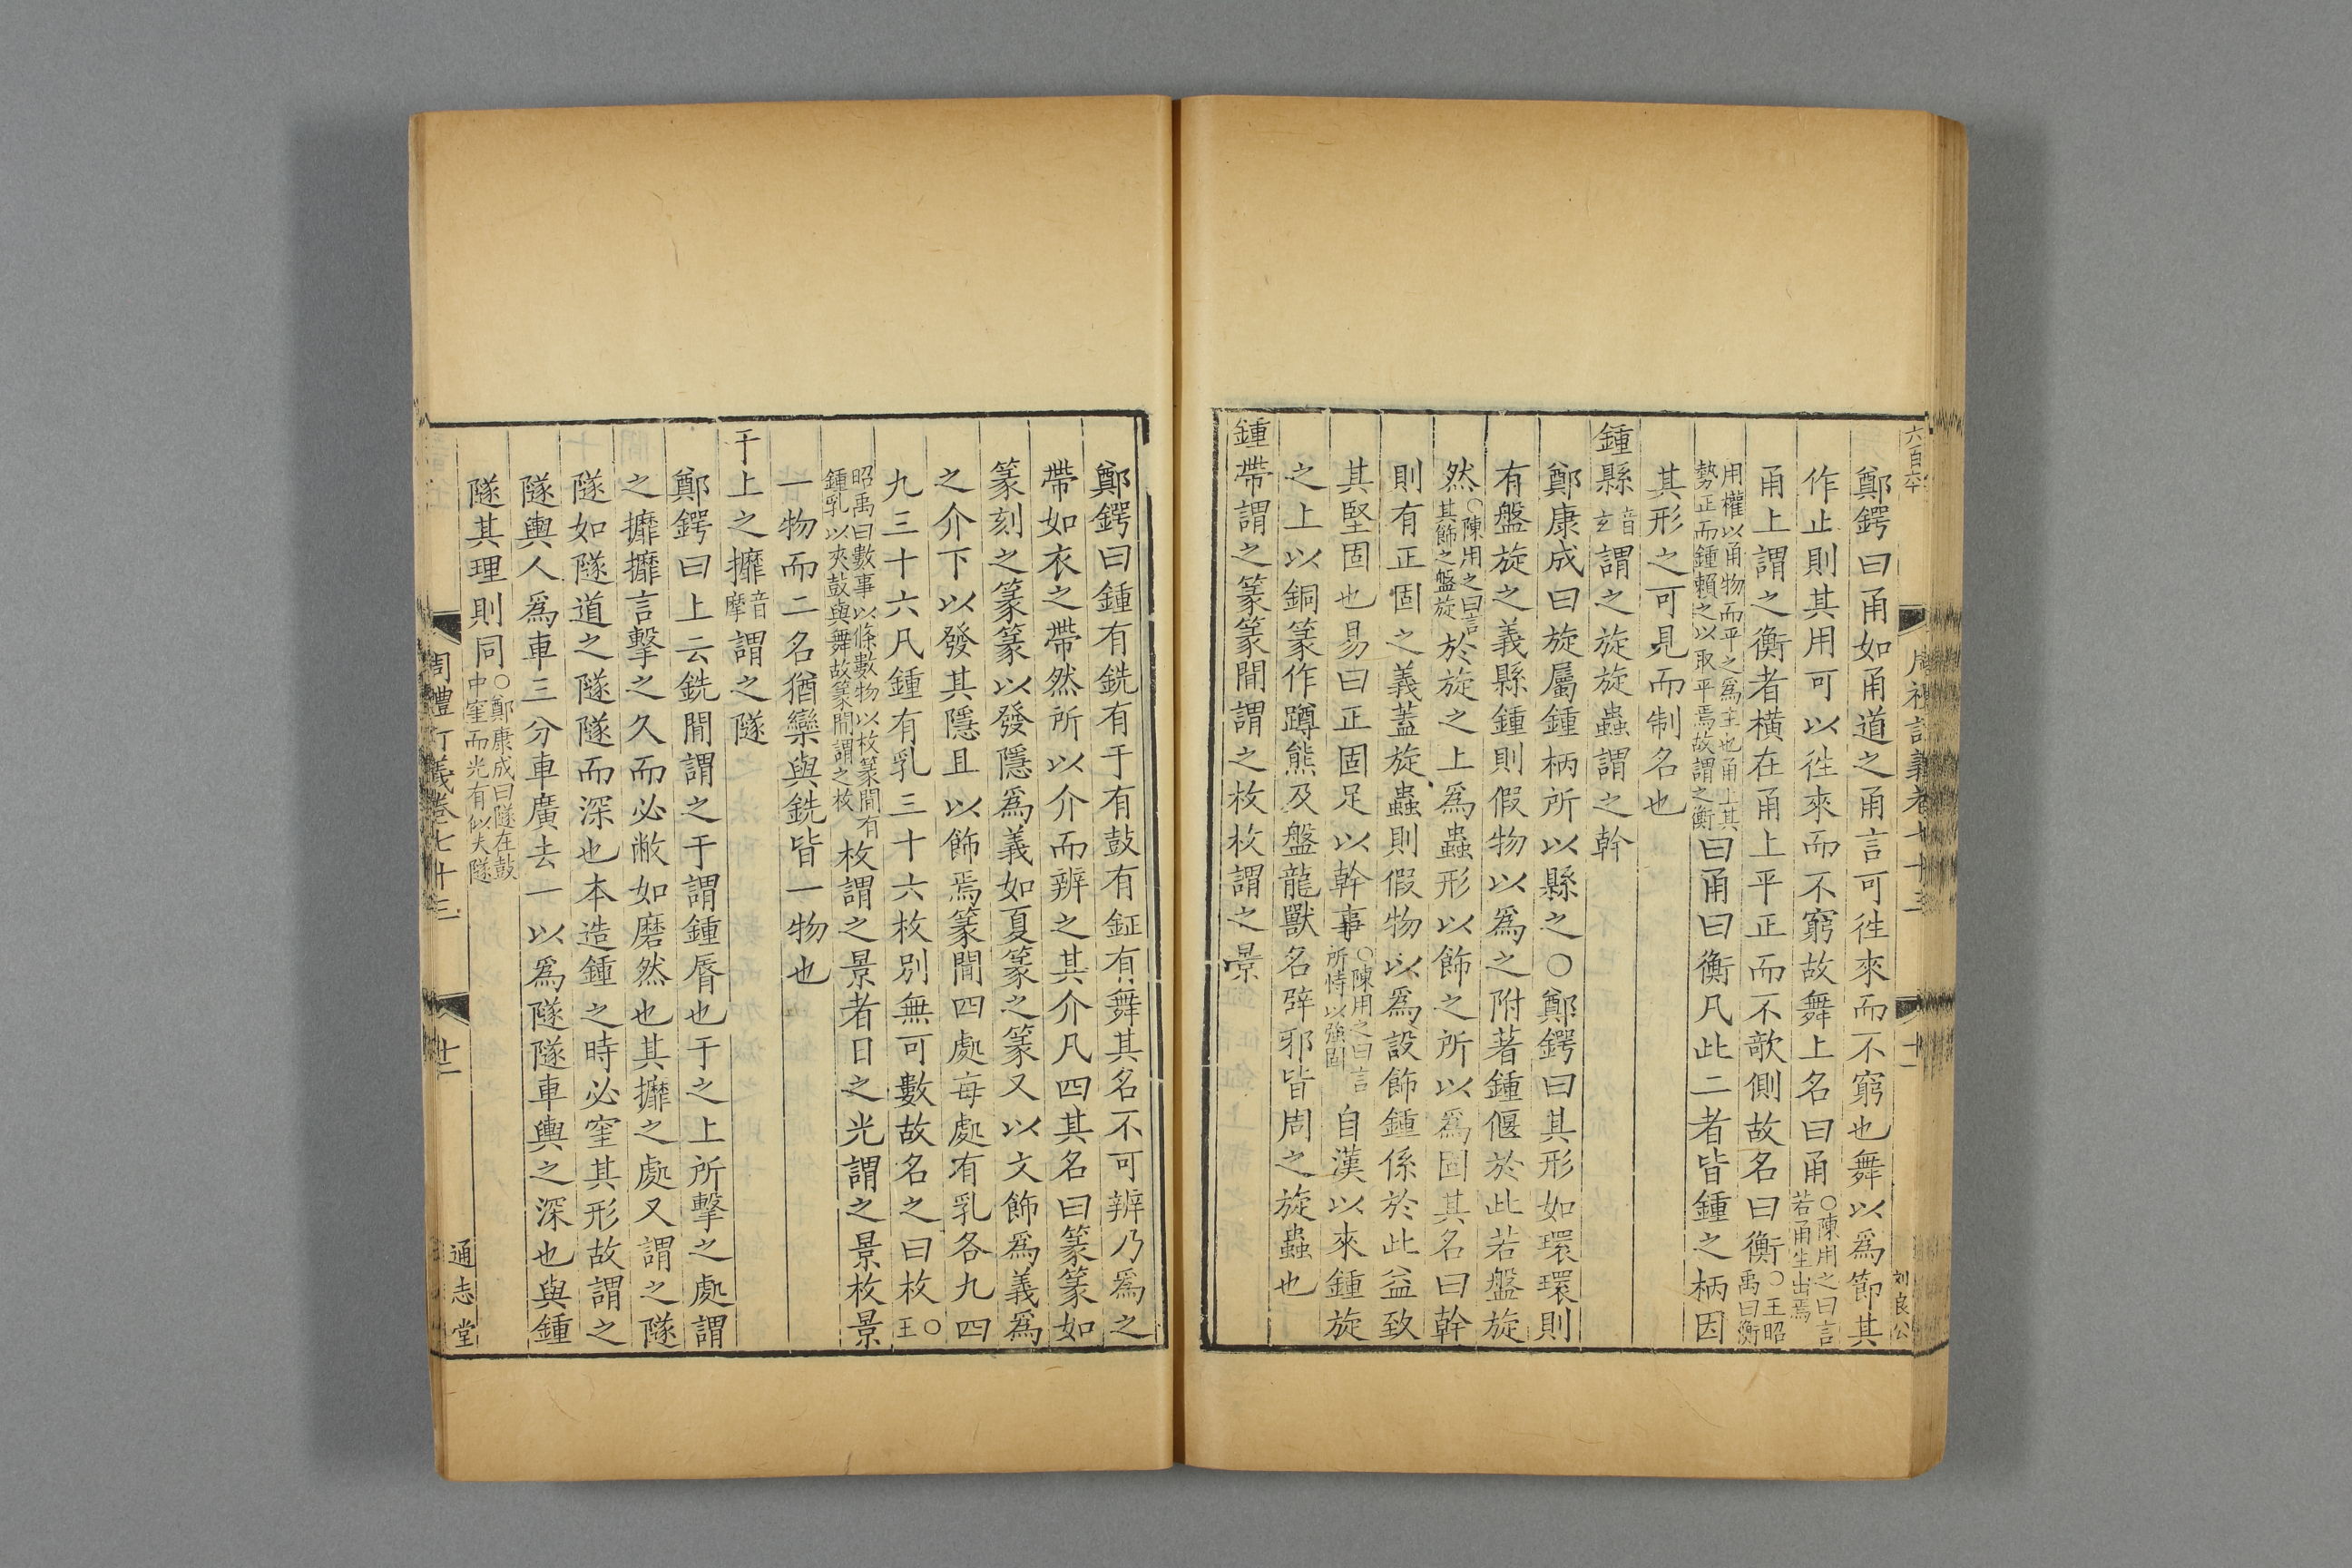 六百六
鄭鍔曰甬如甬道之甬言可徃來而不窮也舞以爲節其
作止則其用可以徃來而不窮故舞上名曰甬○陳用之曰言若甬生出焉
甬上謂之衡者橫在甬上平正而不欹側故名曰衡○王昭禹曰衡
用權以甬物而平之爲主也甬上其勢正而鍾賴之以取平焉故謂之衡曰甬曰衡凡此二者皆鍾之柄因
其形之可見而制名也
鍾縣音玄謂之旋旋蟲謂之幹
鄭康成曰旋屬鍾柄所以縣之○鄭鍔曰其形如環環則
有盤旋之義縣鍾則假物以爲之附著鍾偃於此若盤旋
然○陳用之曰言其飾之盤旋於旋之上爲蟲形以飾之所以爲固其名曰幹
則有正固之義蓋旋蟲則假物以爲設飾鍾係於此益致
其堅固也易曰正固足以幹事○陳用之曰言所恃以強固自漢以來鍾旋
之上以銅篆作蹲熊及盤龍獸名辟邪皆周之旋蟲也
鍾帶謂之篆篆閒謂之枚枚謂之景
刘良公
鄭鍔曰鍾有銑有于有鼓有鉦有舞其名不可辨乃爲之
帶如衣之帶然所以介而辨之其介凡四其名曰篆篆如
篆刻之篆篆以發隱爲義如夏篆之篆又以文飾爲義爲
之介下以發其隱且以飾焉篆閒四處每處有乳各九四
九三十六凡鍾有乳三十六枚別無可數故名之曰枚○王
昭禹曰數事以條數物以枚篆閒有鍾乳以夾鼓與舞故篆閒謂之枚枚謂之景者日之光謂之景枚景
一物而二名猶欒與銑皆一物也
于上之攠音摩謂之隧
鄭鍔曰上云銑閒謂之于謂鍾脣也于之上所擊之處謂
之攠攠言擊之久而必敝如磨然也其攠之處又謂之隧
隧如隧道之隧隧而深也本造鍾之時必窐其形故謂之
隧輿人爲車三分車廣去一以爲隧隧車輿之深也與鍾
隧其理則同○鄭康成曰隧在鼓中窐而光有似夫隧
周禮訂義卷七十三
十二
通志堂